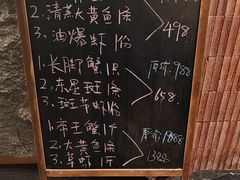 2.清蒸大黄鱼1条
3.油爆虾1份
498
1.长脚蟹1只
2.东星斑1条
3.斑节虾1份
原价:988
658
1.帝王蟹1只
2.大黄鱼1条
3.草虾1斤
原价:1888
1388